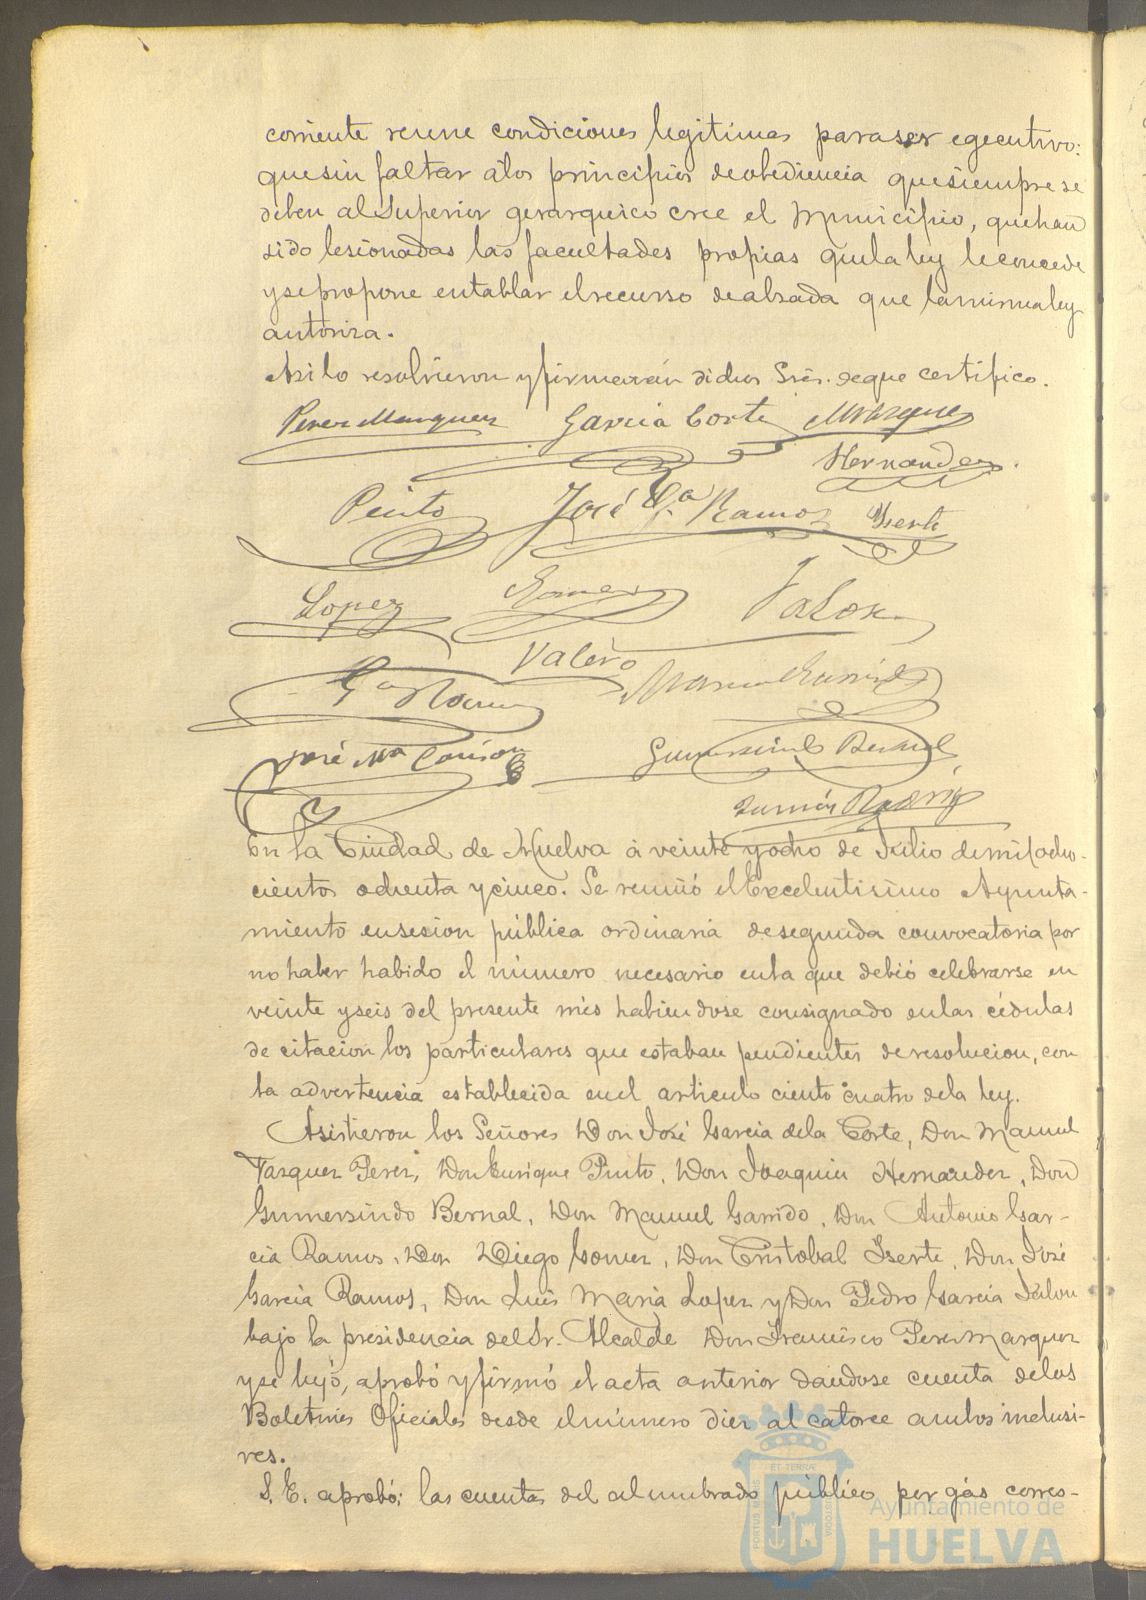 corriente reune condiciones legitimas para ser egecutivo:
que sin faltar á los principios de obediencia que siempre se
deben al Superior gerarquico cree el Municipio, que han
sido lesionadas las facultades propias que la ley le concede
y se propone entablar el recurso de alzada que la misma ley
autoriza.
Asi lo resolvieron y firmarán dichos Sres. de que certifico.
Perez Marquez García Corte M Vazquez
Hernandez.
Pinto José Ga Ramos Iserte
Lopez Gomez Jalon
Valero
Ga Ramos Manuel Garrido
José Ma Gumersindo Bernal
En la Ciudad de Huelva á veinte y ocho de Julio de mil ocho-
cientos ochenta y cinco. Se reunió el Excelentisimo Ayunta-
miento en sesion pública ordinaria de segunda convocatoria por
no haber habido el número necesario en la que debió celebrarse en
veinte y seis del presente més habiendose consignado en las cédulas
de citacion los particulares que estaban pendientes de resolucion, con
la advertencia establecida en el articulo ciento cuatro de la ley.
Asistieron los Señores Don José Garcia de la Corte, Don Manuel
Vazquez Perez, Don Enrique Pinto, Don Joaquin Hernandez, Don
Gumersindo Bernal, Don Manuel Garrido, Don Antonio Gar-
cia Ramos, Don Diego Gomez, Don Cristobal Iserte, Don José
Garcia Ramos, Don Luis Maria Lopez y Don Pedro Garcia Jalon
bajo la presidencia del Sr. Alcalde Don Francisco Perez Marquez
y se leyó, aprobó y firmó el acta anterior dandose cuenta de los
Boletines Oficiales desde el número diez al catorce ambos inclusi-
ves.
S. E. aprobó: las cuentas del alumbrado público por gás corres-
PORTUS MARIS ET TERRÆ CUSTODIA
Ayuntamiento de
HUELVA